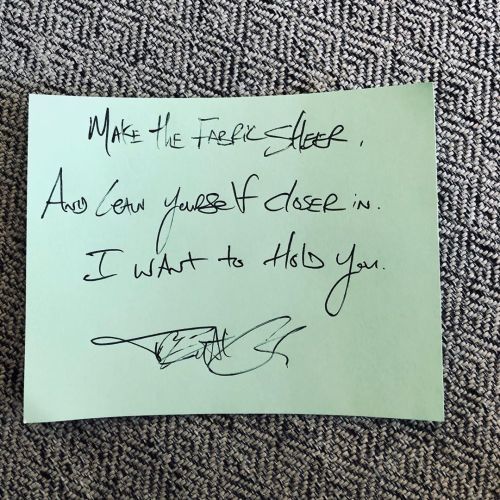 Make the Fabric Sheer.
And Lean yourself closer in.
I want to Hold you.